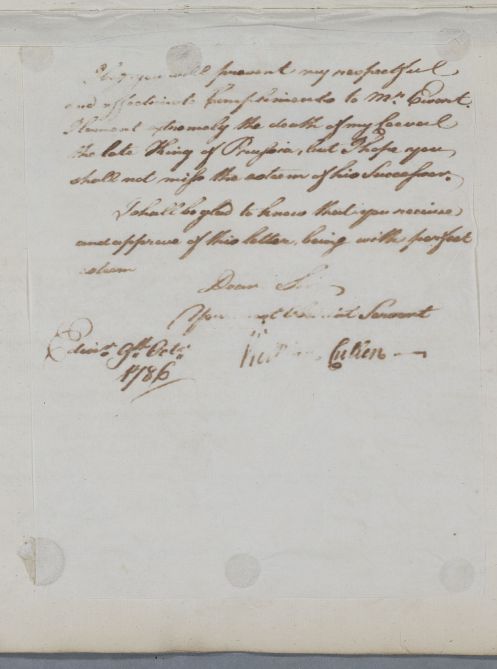 I beg you will present my respectful
and affectionate Compliments to Mr. Ewart.
I lament extremely the death of my
the late King of Prussia, but I hope you
shall not miss the esteem of his Successor.
I shall be glad to know that you receive
and approve of this letter, being with perfect
esteem
Dear Sir
Your most Obedient Servant
William Cullen
Edinr. 9th. Octr.
1786